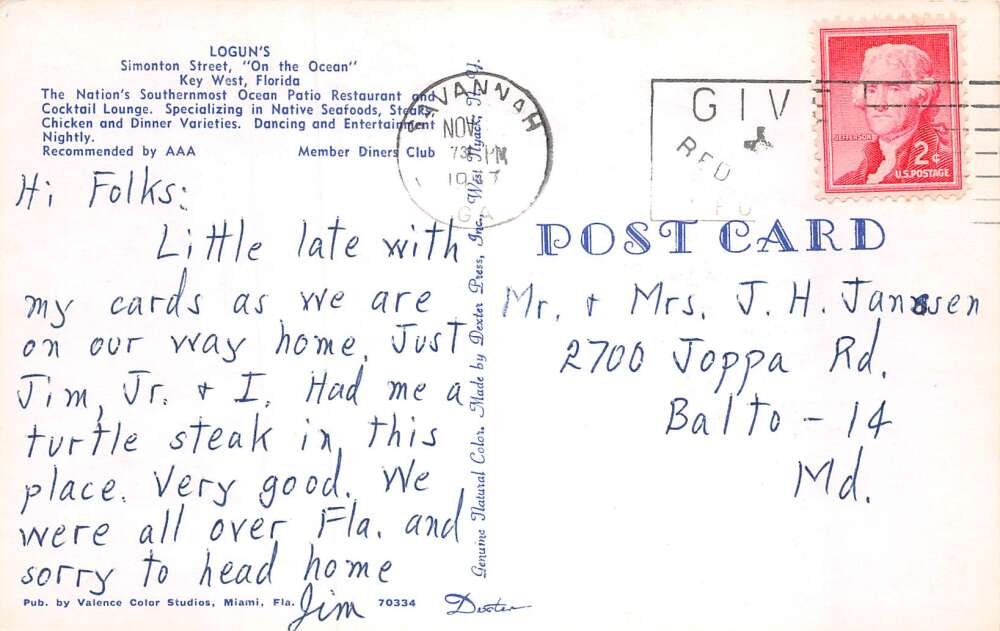 LOGUN'S
Simonton Street, "On the Ocean"
Key West, Florida
The Nation's Southernmost Ocean Patio Restaurant and
Cocktail Lounge. Specializing in Native Seafoods, Steaks
Chicken and Dinner Varieties. Dancing and Entertainment
Nightly.
Recommended by AAA Member Diners Club
Hi Folks:
Little late with
my cards as we are
on our way home. Just
Jim, Jr. & I. Had me a
turtle steak in this
place. Very good. We
were all over Fla. and
sorry to head home
Jim
Pub. by Valence Color Studios, Miami, Fla. 70334
Dexter
Genuine Natural Color. Made by Dexter Press, Inc., West Nyack, N. Y.
SAVANNAH
NOV
PM
GA
GIV
RED
JEFFERSON
2¢
U.S. POSTAGE
POST CARD
Mr. & Mrs. J. H. Janssen
2700 Joppa Rd.
Balto - 14
Md.